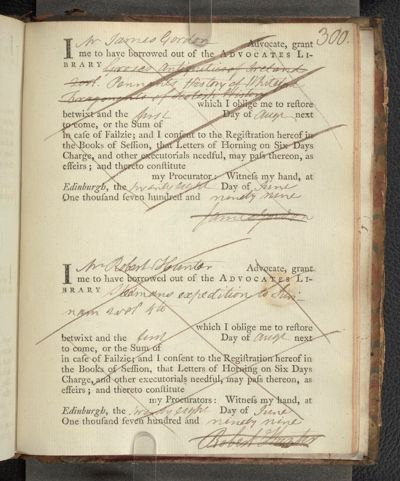 300.
I Mr James Gordon Advocate, grant
me to have borrowed out of the ADVOCATES LI-
BRARY Grose's Antiquities of Ireland
Pennant's History of
Fragments of Scotch History
which I oblige me to reſtore
betwixt and the first Day of Augt next
to come, or the Sum of
in caſe of Failzie; and I conſent to the Regiſtration hereof in
the Books of Seſſion, that Letters of Horning on Six Days
Charge, and other executorials needful, may paſs thereon, as
effeirs; and thereto conſtitute
my Procurator: Witneſs my hand, at
Edinburgh, the twenty eight Day of June
One thouſand ſeven hundred and ninety nine
James Gordon
I Mr Robert Hunter Advocate, grant
me to have borrowed out of the ADVOCATES LI-
BRARY Stedmans expedition to Suri-
nam 2 vols 4to
which I oblige me to reſtore
betwixt and the first Day of Augt next
to come, or the Sum of
in caſe of Failzie; and I conſent to the Regiſtration hereof in
the Books of Seſſion, that Letters of Horning on Six Days
Charge, and other executorials needful, may paſs thereon, as
effeirs; and thereto conſtitute
my Procurators: Witneſs my hand, at
Edinburgh, the twenty eight Day of June
One thouſand ſeven hundred and ninety nine
Robert Hunter